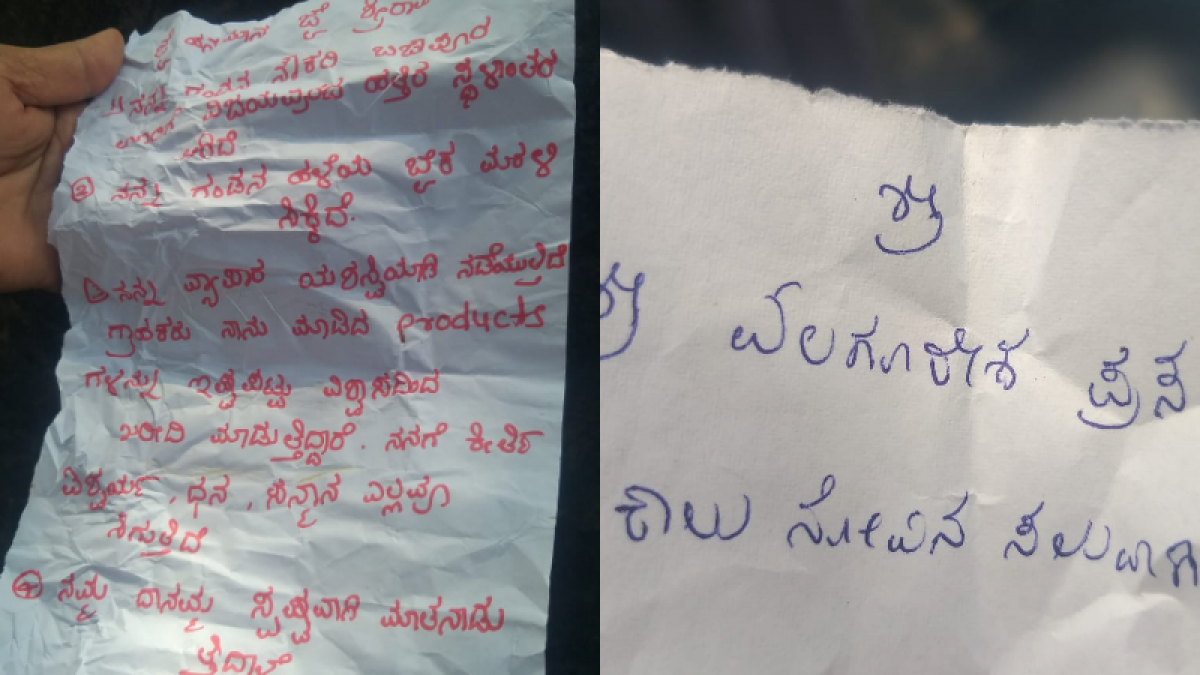 ಜೈ ಹನುಮಾನ ಜೈ ಶ್ರೀರಾಮ
ನನ್ನ ಗಂಡನ ನೌಕರಿ ಬಿಜಾಪೂರ
ವಿಜಯಪುರದ ಹತ್ತಿರ ಸ್ಥಳಾಂತರ
ಆಗಿದೆ
② ನನ್ನ ಗಂಡನ ಹಳೆಯ ಬೈಕ ಮರಳಿ
ಸಿಕ್ಕಿದೆ.
ನನ್ನ ವ್ಯಾಪಾರ ಯಶಸ್ವಿಯಾಗಿ ನಡೆಯುತ್ತಿದೆ
ಗ್ರಾಹಕರು ನಾನು ಮಾಡಿದ products
ಗಳನ್ನು ಇಷ್ಟಪಟ್ಟು ವಿಶ್ವಾಸದಿಂದ
ಖರೀದಿ ಮಾಡುತ್ತಿದ್ದಾರೆ. ನನಗೆ ಕೀರ್ತಿ
ಐಶ್ವರ್ಯ, ಧನ, ಸನ್ಮಾನ ಎಲ್ಲವೂ
ಸಿಗುತ್ತಿದೆ
④ ನಮ್ಮ ದಾನಮ್ಮ ಸ್ಪಷ್ಟವಾಗಿ ಮಾತನಾಡು
ತ್ತಿದಾಳೆ
ಶ್ರೀ
ಶ್ರೀ ಯಲಗೂರೇಶ ಪ್ರಸ
ಕಾಲು ನೋವಿನ ಸಲುವಾಗಿ